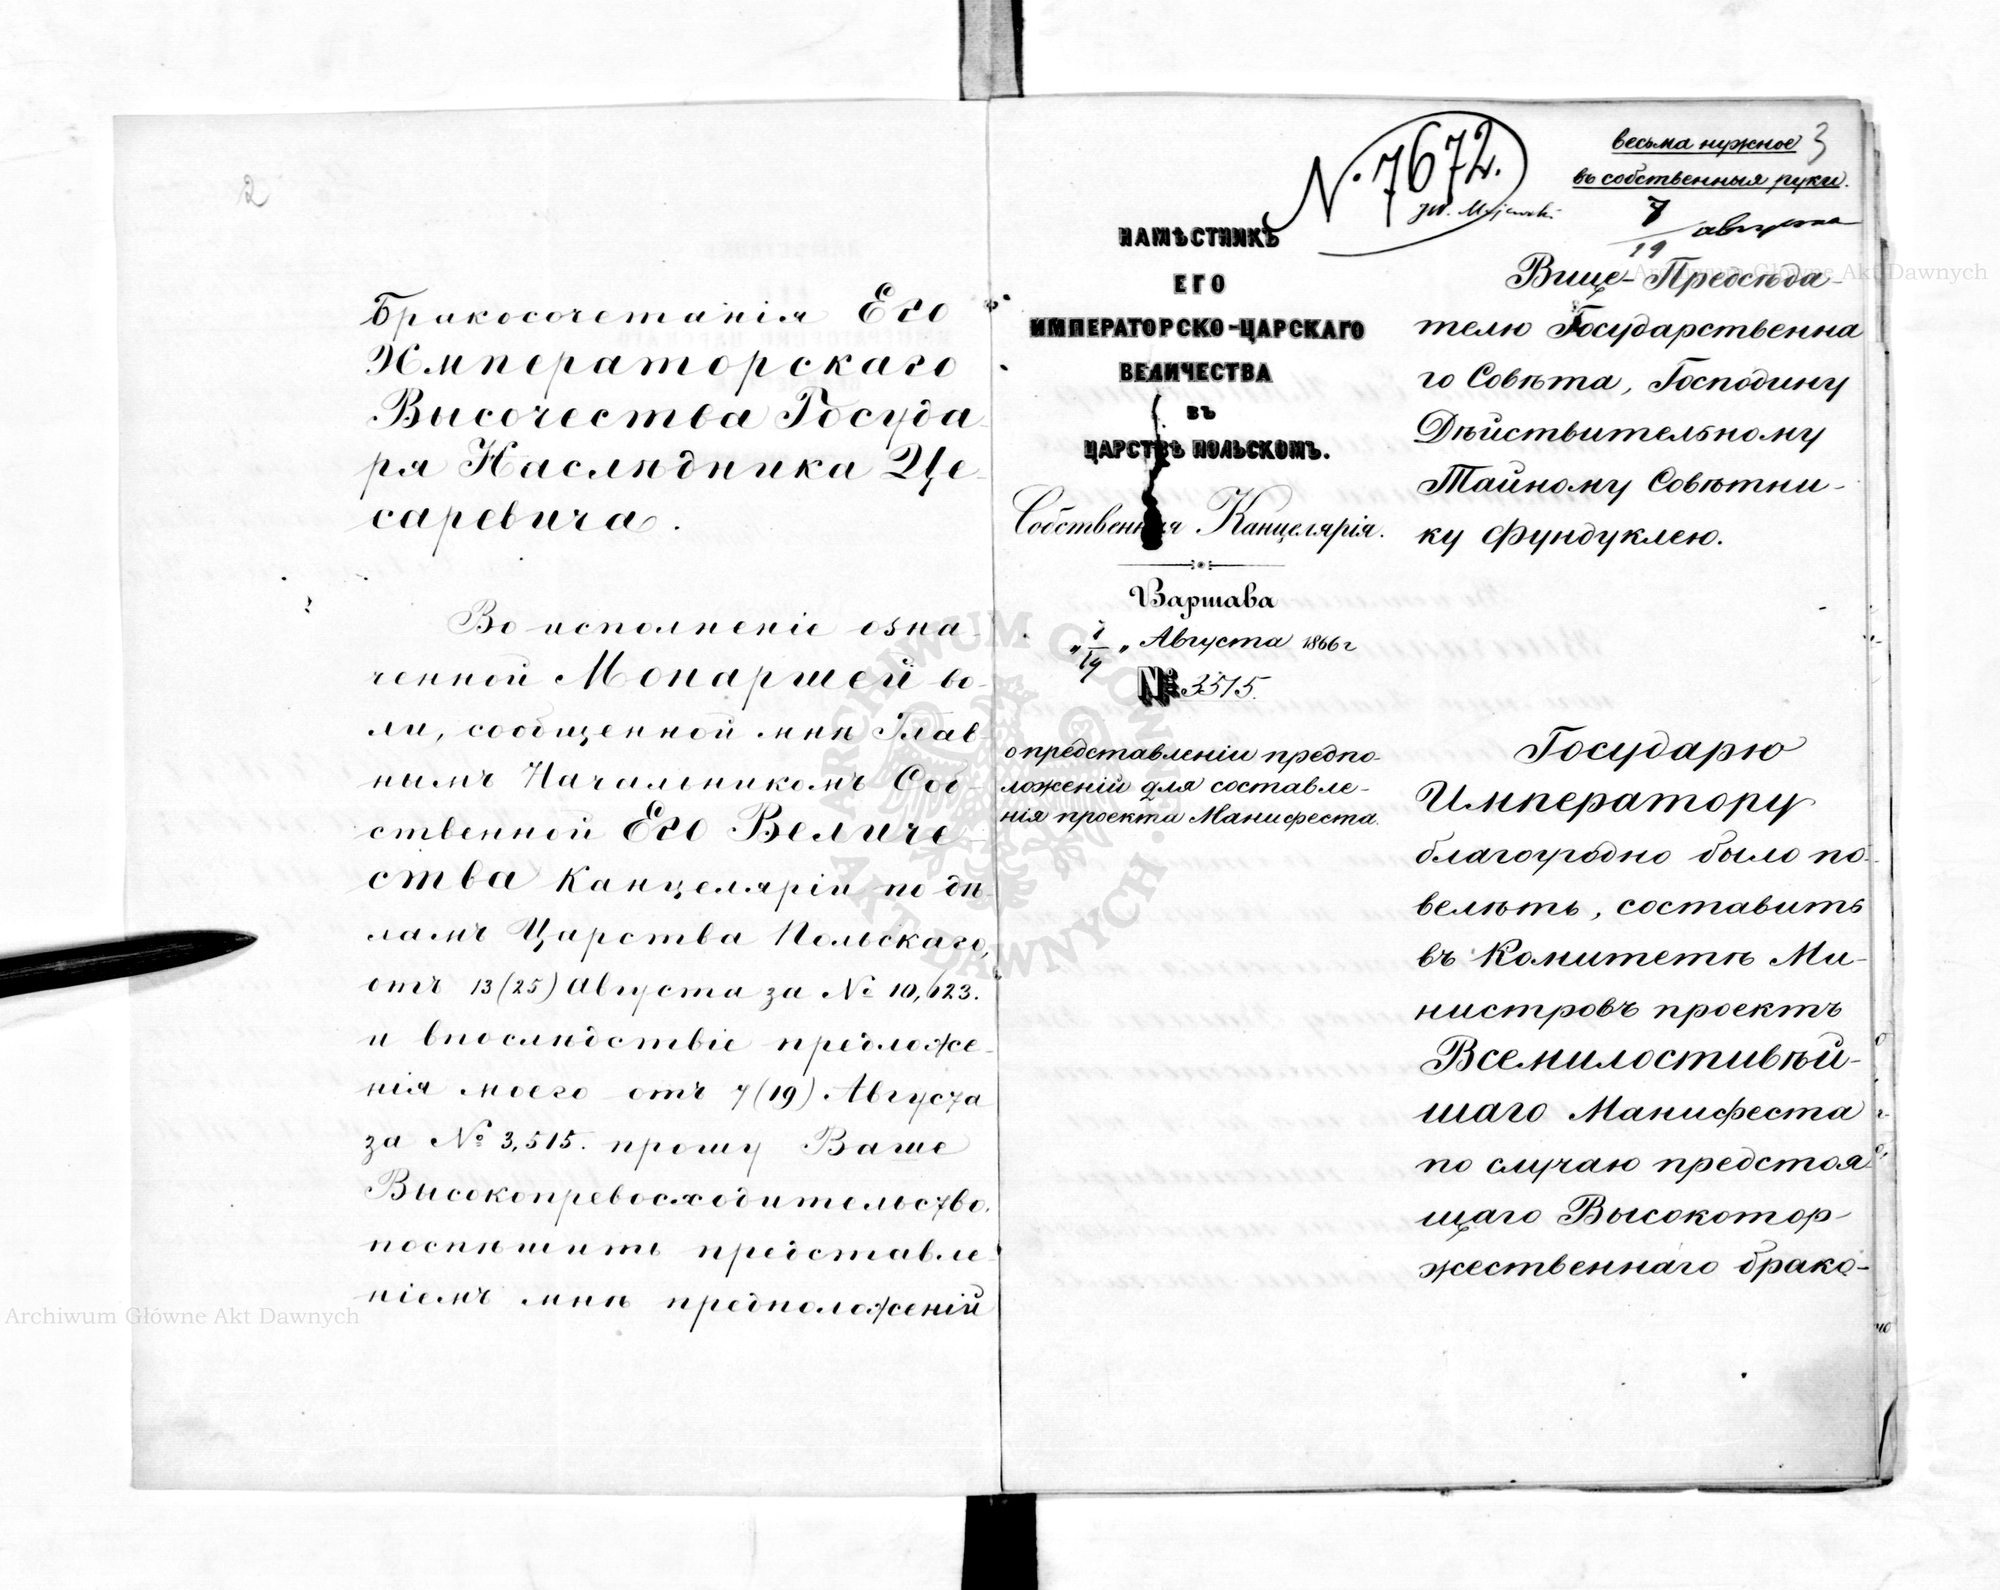 2
Бракосочетанія Его
Императорскаго
Высочества Госуда-
ря Наслѣдника Це-
саревича.
Во исполненіе озна-
ченной Монаршей во-
ли, сообщенной мнѣ Глав-
нымъ Начальникомъ Соб-
ственной Его Величе-
ства Канцеляріи по дѣ-
ламъ Царства Польскаго,
отъ 13 (25) Августа за № 10,623.
и впослѣдствіе предложе-
нія моего отъ 7 (19) Августа
за № 3,515. прошу Ваше
Высокопревосходительство,
поспѣшить представле-
ніемъ мнѣ предположеній
N. 7672.
JW. Majewski
весьма нужное 3
въ собственныя руки.
7/19 августа
НАМѢСТНИКЪ
ЕГО
ИМПЕРАТОРСКО-ЦАРСКАГО
ВЕЛИЧЕСТВА
ВЪ
ЦАРСТВѢ ПОЛЬСКОМЪ.
Собственная Канцелярія.
Варшава
„7/19„ Августа 1866 г
№ 3515.
о представленіи предпо-
ложеній для составле-
нія проекта Манифеста.
Вице-Предсѣда-
телю Государственна
го Совѣта, Господину
Дѣйствительному
Тайному Совѣтни-
ку Фундуклею.
Государю
Императору
благоугодно было по-
велѣть, составить
въ Комитетѣ Ми-
нистровъ проектъ
Всемилостивѣй-
шаго Манифеста
по случаю предстоя
щаго Высокотор-
жественнаго брако-
Archiwum Główne Akt Dawnych
Archiwum Główne Akt Dawnych
ARCHIWUM GŁÓWNE AKT DAWNYCH